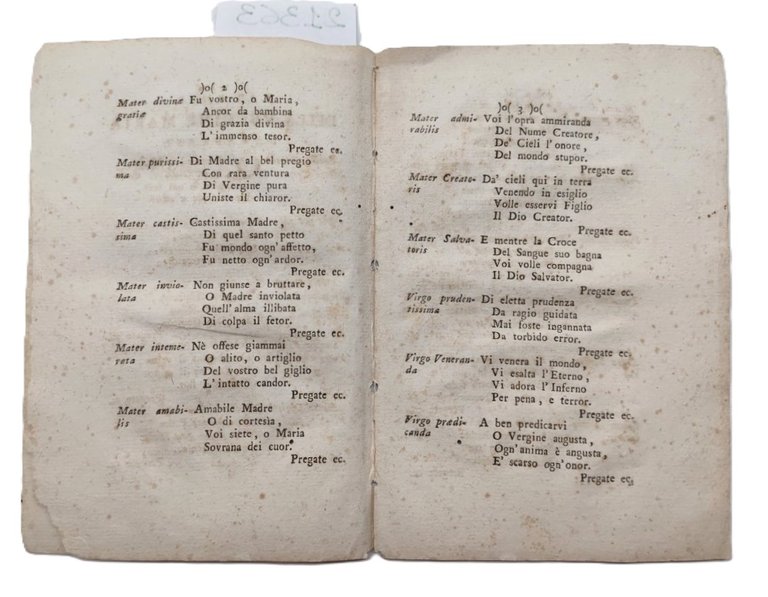 21363
)o( 2 )o(
Mater divinæ Fu vostro, o Maria,
gratiæ Ancor da bambina
Di grazia divina
L' immenso tesor.
Pregate ec.
Mater purissi- Di Madre al bel pregio
ma Con rara ventura
Di Vergine pura
Uniste il chiaror.
Pregate ec.
Mater castis- Castissima Madre,
sima Di quel santo petto
Fu mondo ogn'affetto,
Fu netto ogn'ardor.
Pregate ec.
Mater invio- Non giunse a bruttare,
lata O Madre inviolata
Quell'alma illibata
Di colpa il fetor.
Pregate ec.
Mater inteme- Nè offese giammai
rata O alito, o artiglio
Del vostro bel giglio
L' intatto candor.
Pregate ec.
Mater amabi- Amabile Madre
lis O di cortesìa,
Voi siete, o Maria
Sovrana dei cuor.
Pregate ec.
)o( 3 )o(
Mater admi- Voi l'opra ammiranda
rabilis Del Nume Creatore,
De' Cieli l'onore,
Del mondo stupor.
Pregate ec.
Mater Creato- Da' cieli qui in terra
ris Venendo in esiglio
Volle esservi Figlio
Il Dio Creator.
Pregate ec.
Mater Salva- E mentre la Croce
toris Del Sangue suo bagna
Voi volle compagna
Il Dio Salvator.
Pregate ec.
Virgo pruden- Di eletta prudenza
tissima Da ragio guidata
Mai foste ingannata
Da torbido error.
Pregate ec.
Virgo Veneran- Vi venera il mondo,
da Vi esalta l'Eterno,
Vi adora l'Inferno
Per pena, e terror.
Pregate ec.
Virgo prædi- A ben predicarvi
canda O Vergine augusta,
Ogn'anima è angusta,
E' scarso ogn'onor.
Pregate ec.